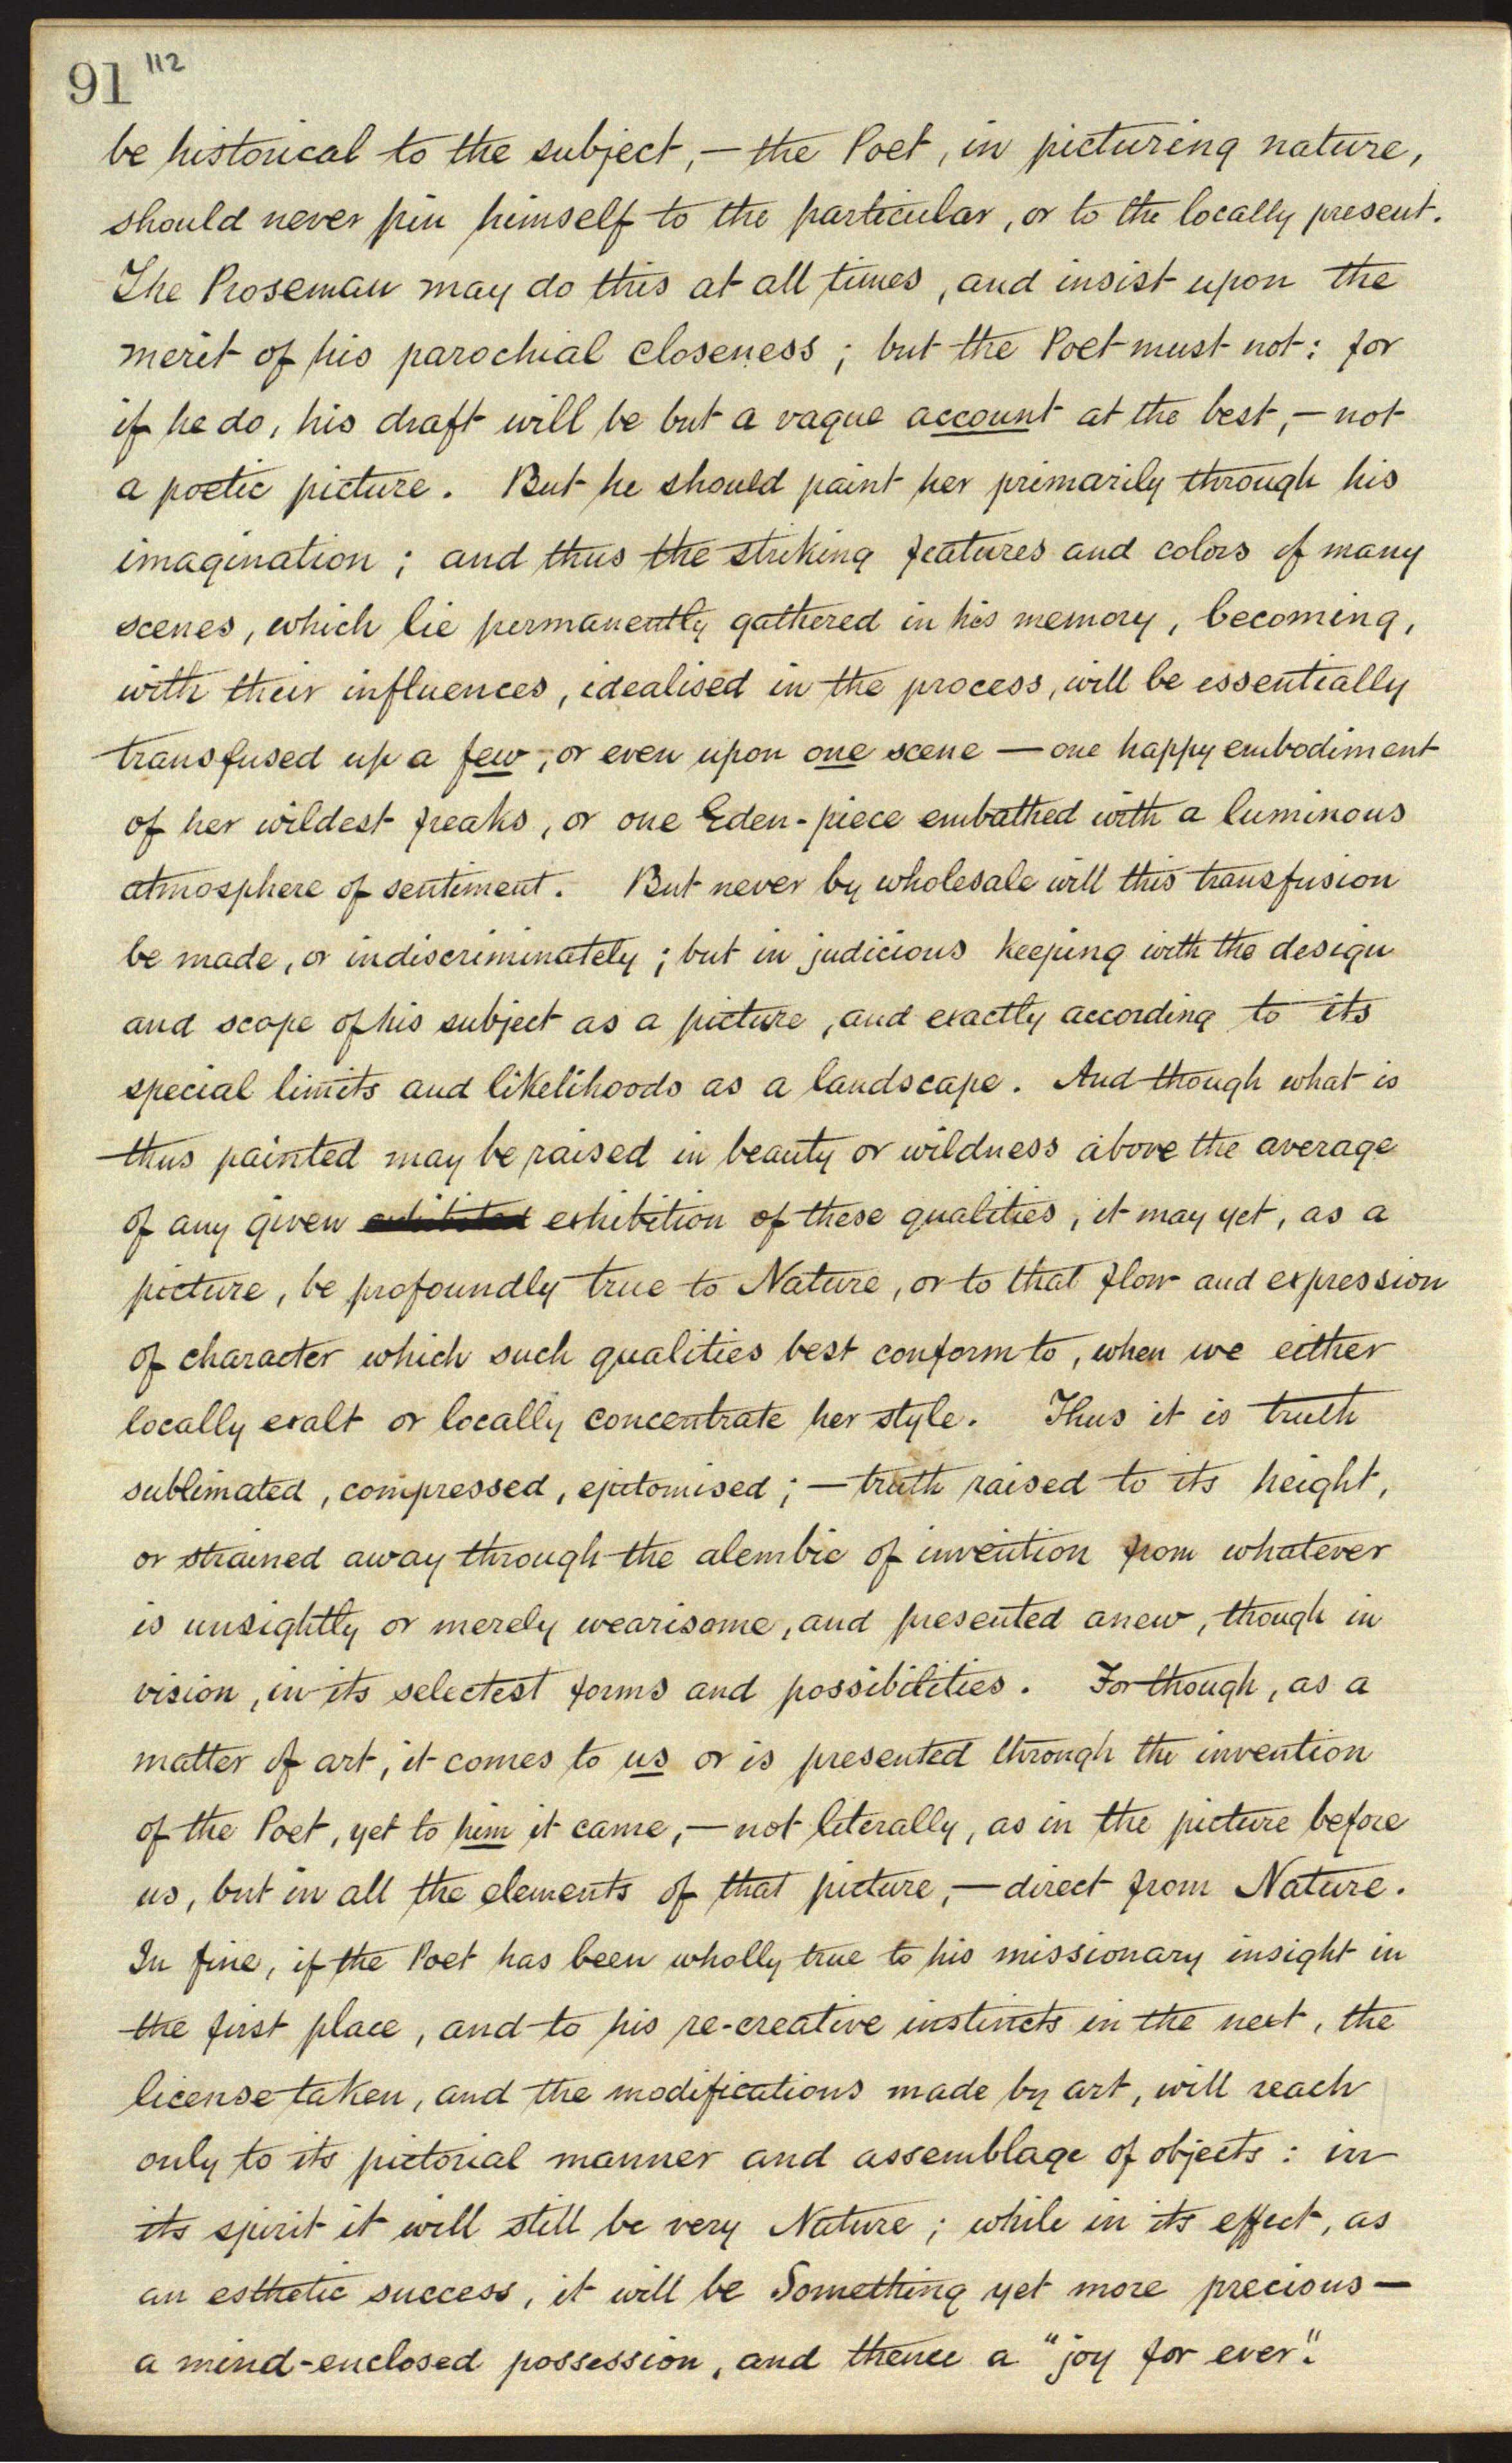 91 112
be historical to the subject, — the Poet, in picturing nature,
should never pin himself to the particular, or to the locally present.
The Proseman may do this at all times, and insist upon the
merit of his parochial closeness; but the Poet must not: for
if he do, his draft will be but a vague account at the best, — not
a poetic picture. But he should paint her primarily through his
imagination; and thus the striking features and colors of many
scenes, which lie permanently gathered in his memory, becoming,
with their influences, idealised in the process, will be essentially
transfused up a few, or even upon one scene — one happy embodiment
of her wildest freaks, or one Eden-piece embathed with a luminous
atmosphere of sentiment. But never by wholesale will this transfusion
be made, or indiscriminately; but in judicious keeping with the design
and scope of his subject as a picture, and exactly according to its
special limits and likelihoods as a landscape. And though what is
thus painted may be raised in beauty or wildness above the average
of any given exhibition of these qualities, it may yet, as a
picture, be profoundly true to Nature, or to that flow and expression
of character which such qualities best conform to, when we either
locally exalt or locally concentrate her style. Thus it is truth
sublimated, compressed, epitomised; — truth raised to its height,
or strained away through the alembic of invention from whatever
is unsightly or merely wearisome, and presented anew, though in
vision, in its selectest forms and possibilities. For though, as a
matter of art, it comes to us or is presented through the invention
of the Poet, yet to him it came, — not literally, as in the picture before
us, but in all the elements of that picture, — direct from Nature.
In fine, if the Poet has been wholly true to his missionary insight in
the first place, and to his re-creative instincts in the next, the
license taken, and the modifications made by art, will reach
only to its pictorial manner and assemblage of objects: in
its spirit it will still be very Nature; while in its effect, as
an esthetic success, it will be Something yet more precious —
a mind-enclosed possession, and thence a "joy for ever".